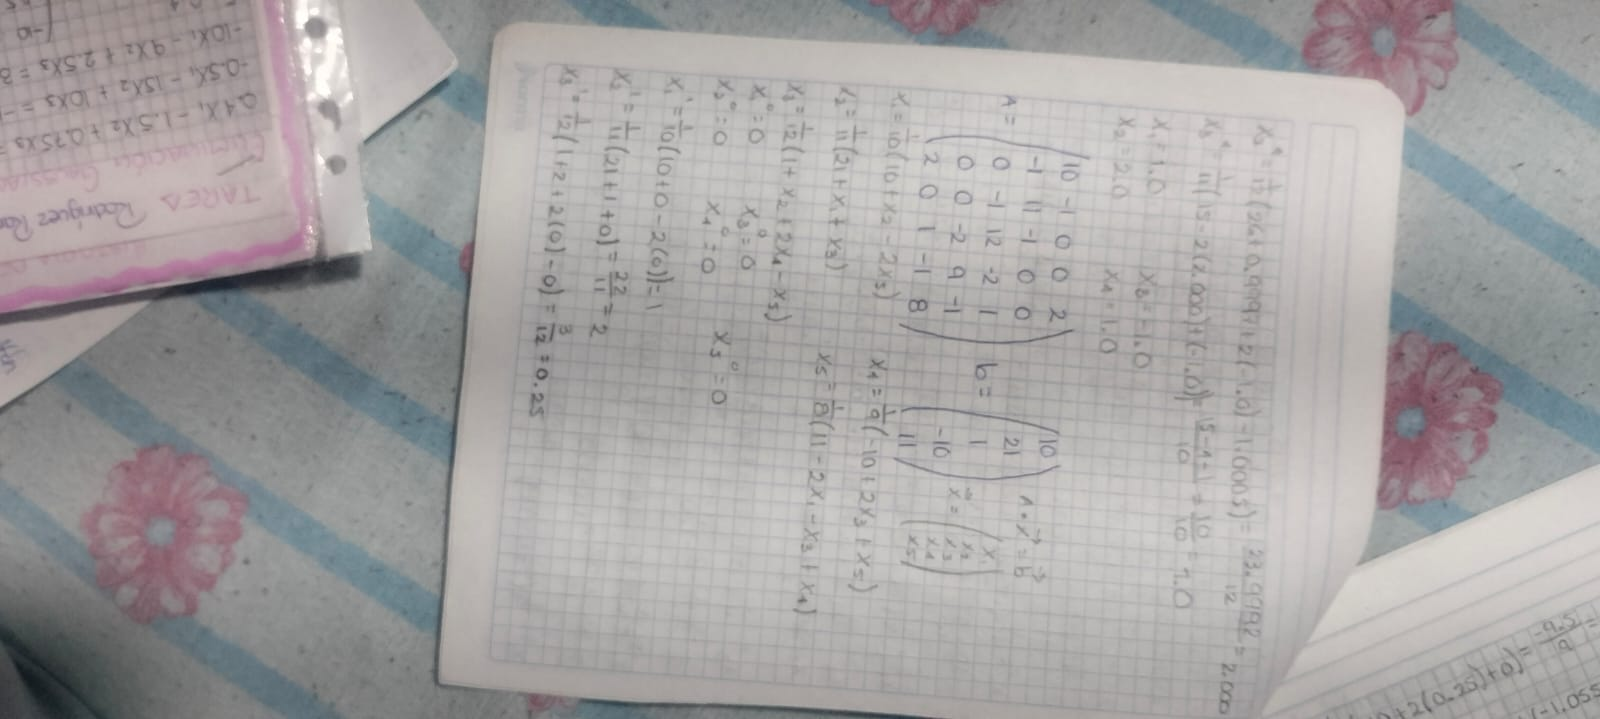 x₃⁴ = 1/12 (26 + 0.9997 + 2(-1.0) - 1.0005) = 23.9992/12 = 2.000
x₄ = 1/11 (15 - 2(2.000) + (-1.0)) = 15-4-1/10 = 10/10 = 1.0
x₁ = 1.0 x₃ = -1.0
x₂ = 2.0 x₄ = 1.0
A = ( 10 -1 0 0 2
-1 11 -1 0 0
0 -1 12 -2 1
0 0 -2 9 -1
2 0 1 -1 8 )
b = ( 10
21
1
-10
11 )
A · x⃗ = b⃗
x⃗ = ( x₁
x₂
x₃
x₄
x₅ )
x₁ = 1/10 (10 + x₂ - 2x₅) x₄ = 1/9 (-10 + 2x₃ + x₅)
x₂ = 1/11 (21 + x₁ + x₃) x₅ = 1/8 (11 - 2x₁ - x₃ + x₄)
x₃ = 1/12 (1 + x₂ + 2x₄ - x₅)
x₁⁰ = 0 x₃⁰ = 0
x₂⁰ = 0 x₄⁰ = 0 x₅⁰ = 0
x₁¹ = 1/10 (10 + 0 - 2(0)) = 1
x₂¹ = 1/11 (21 + 1 + 0) = 22/11 = 2
x₃¹ = 1/12 (1 + 2 + 2(0) - 0) = 3/12 = 0.25
TAREA Rodríguez
Eliminación
0.4x₁ - 1.5x₂ + 0.75x₃ =
-0.5x₁ - 15x₂ + 10x₃ =
-10x₁ - 9x₂ + 2.5x₃ = 8
(-10
+ 2(0.25) + 0) = -9.5/9 =
(-1.055